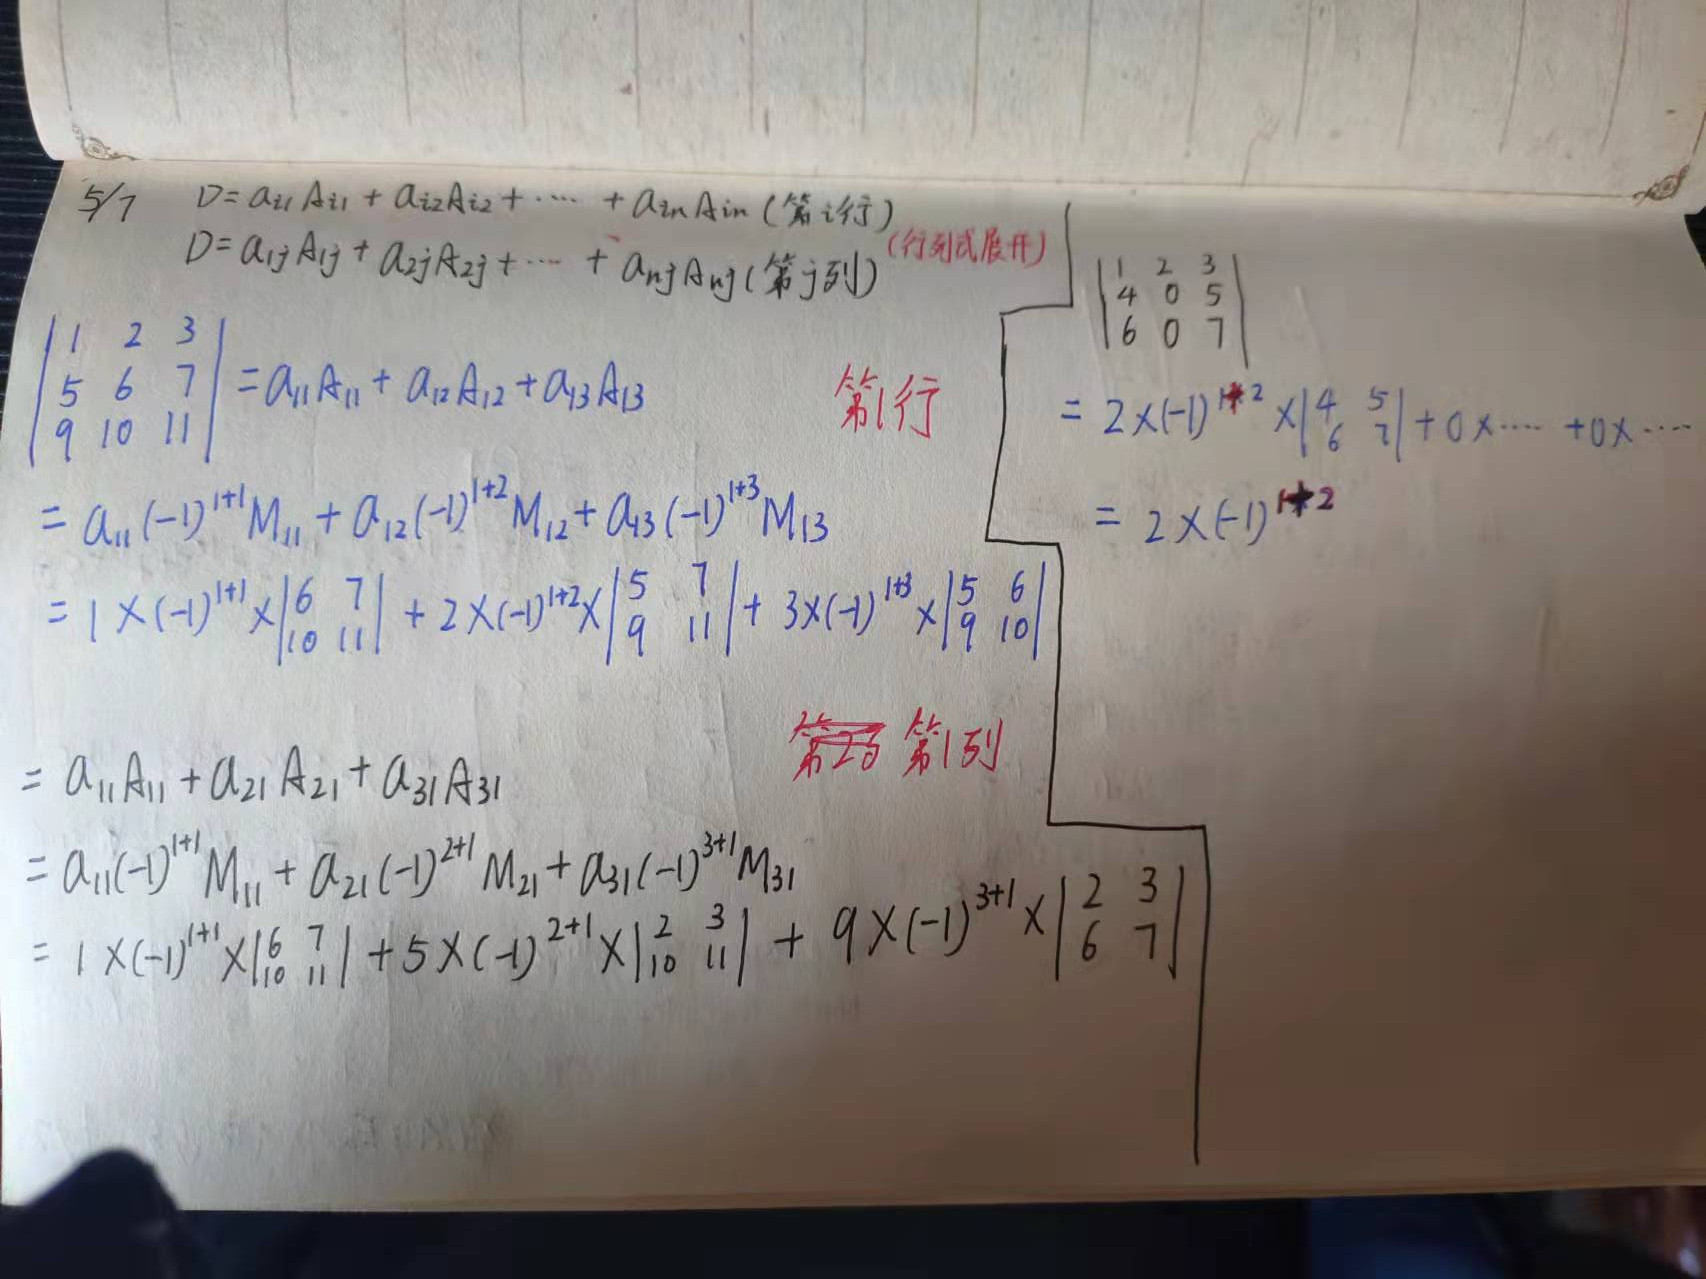 5/7 D=ai1Ai1+ai2Ai2+⋯+ainAin(第i行)
D=a1jA1j+a2jA2j+⋯+anjAnj(第j列)(行列式展开)
|1 2 3
5 6 7
9 10 11| =a11A11+a12A12+a13A13 第1行
=a11(-1)^1+1 M11+a12(-1)^1+2 M12+a13(-1)^1+3 M13
=1×(-1)^1+1×|6 7
10 11|+2×(-1)^1+2×|5 7
9 11|+3×(-1)^1+3×|5 6
9 10|
第1列
=a11A11+a21A21+a31A31
=a11(-1)^1+1 M11+a21(-1)^2+1 M21+a31(-1)^3+1 M31
=1×(-1)^1+1×|6 7
10 11|+5×(-1)^2+1×|2 3
10 11|+9×(-1)^3+1×|2 3
6 7|
|1 2 3
4 0 5
6 0 7|
=2×(-1)^1+2×|4 5
6 7|+0×⋯+0×⋯
=2×(-1)^1+2